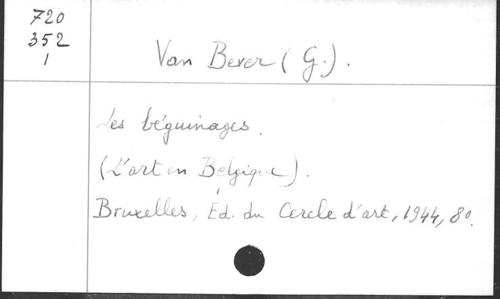 720
352
1
Van Bever (G.).
Les béguinages.
(L'art en Belgique).
Bruxelles, Ed. du Cercle d'art, 1944, 8°.